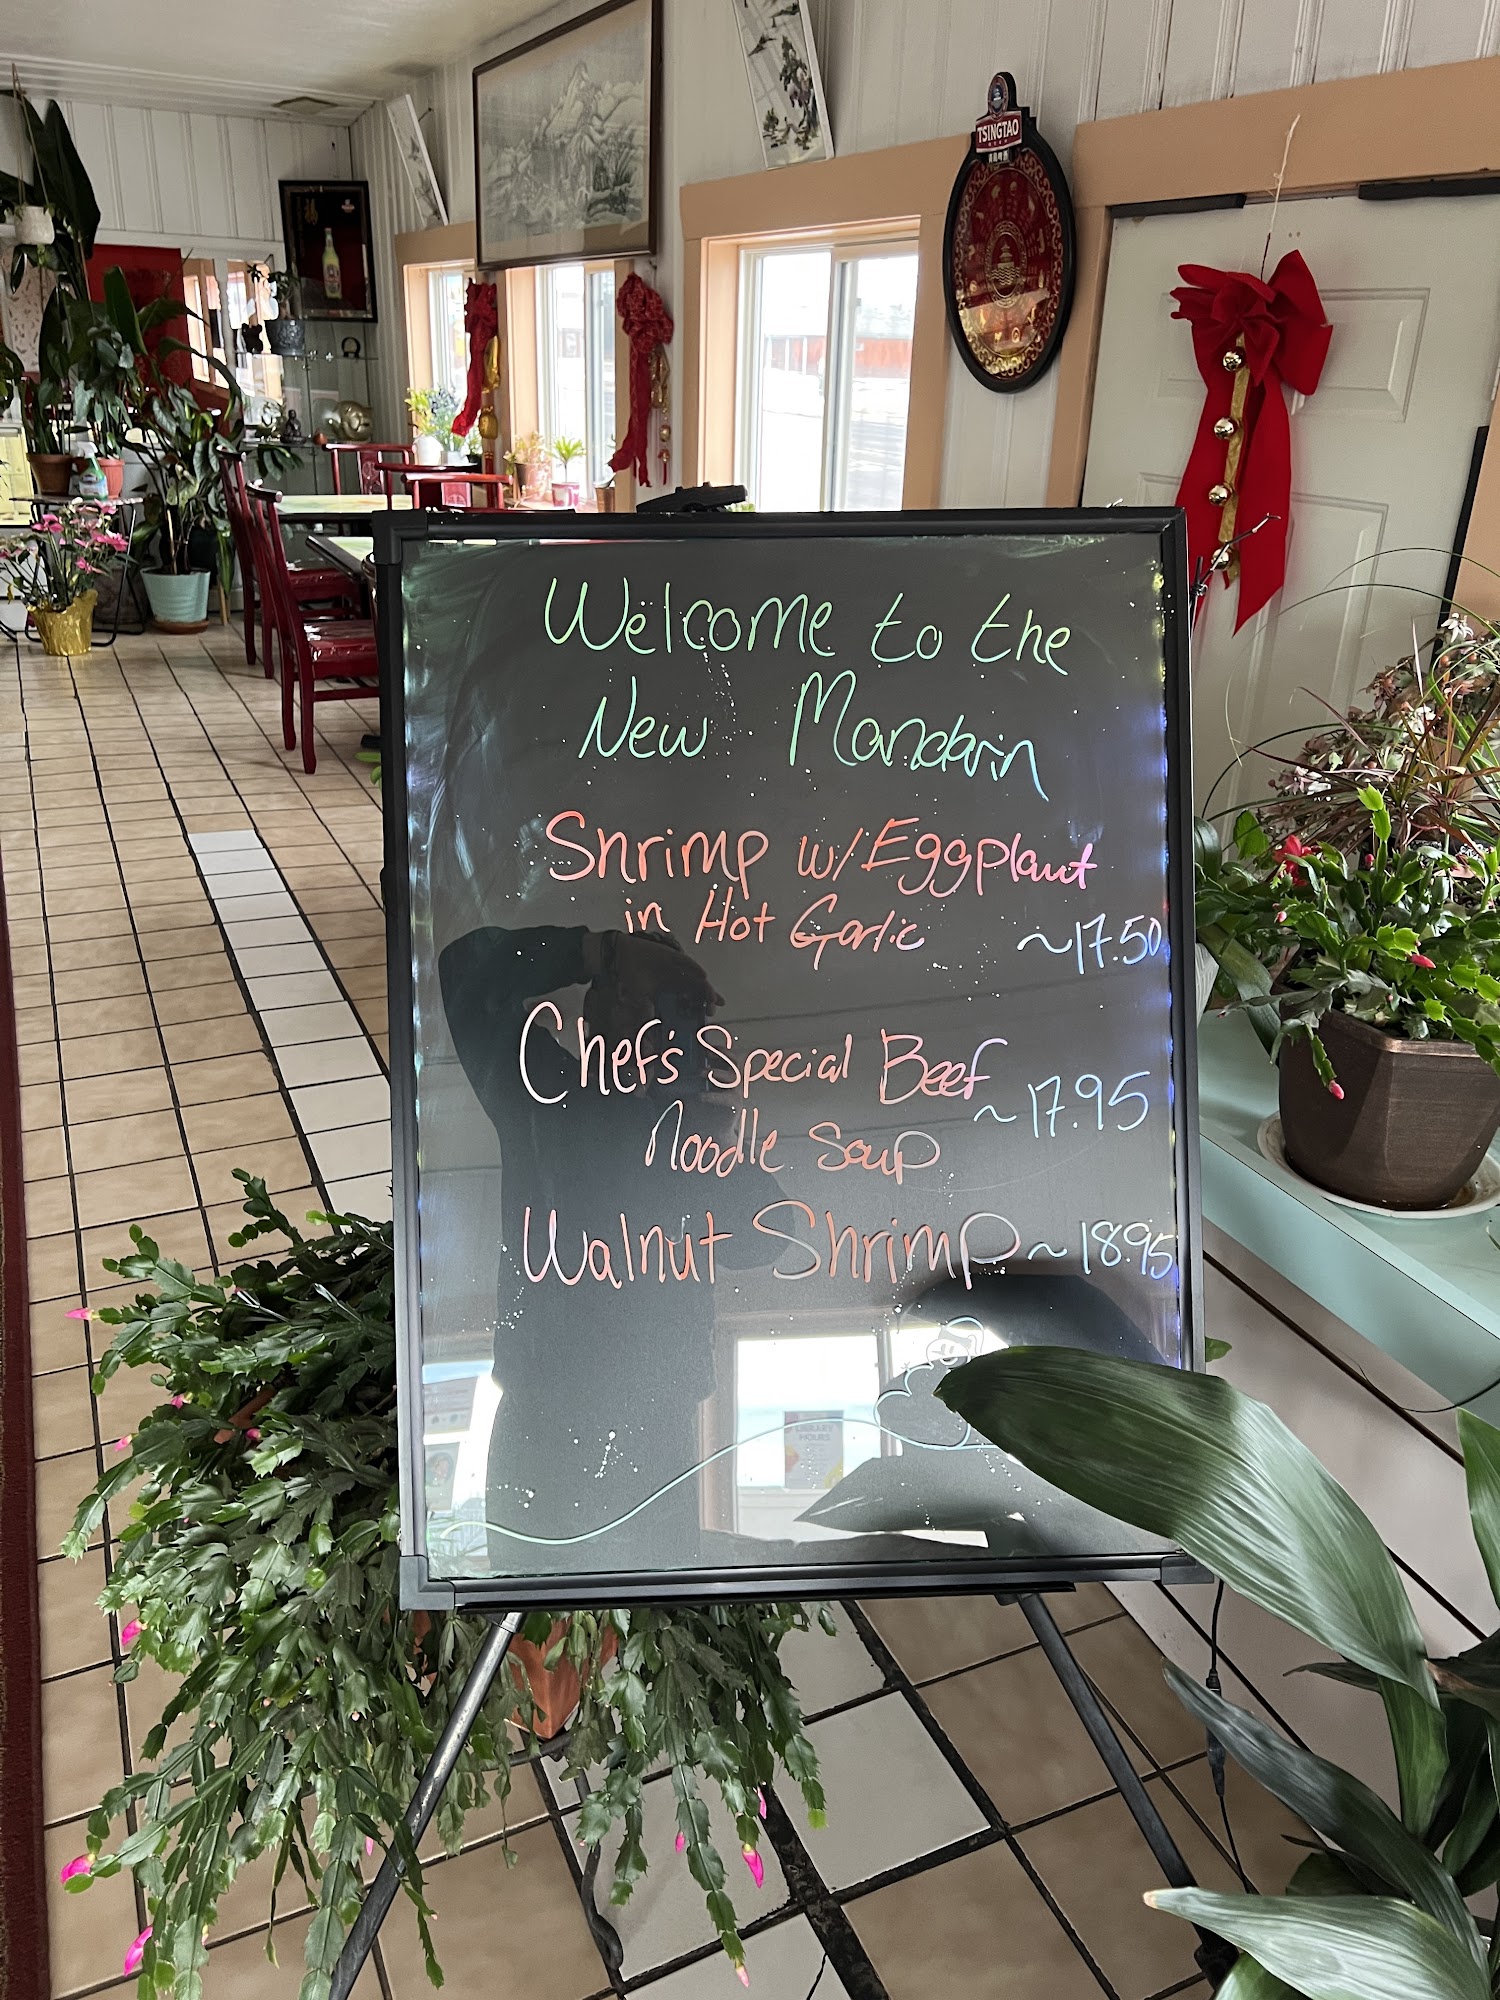 TSINGTAO
Welcome to the
New Mandarin
Shrimp w/ Eggplant
in Hot Garlic ~17.50
Chef's Special Beef
~17.95
Noodle Soup
Walnut Shrimp ~18.95
LIBRARY
HOURS